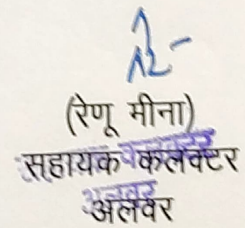 (रेणू मीना)
सहायक कलक्टर
अलवर